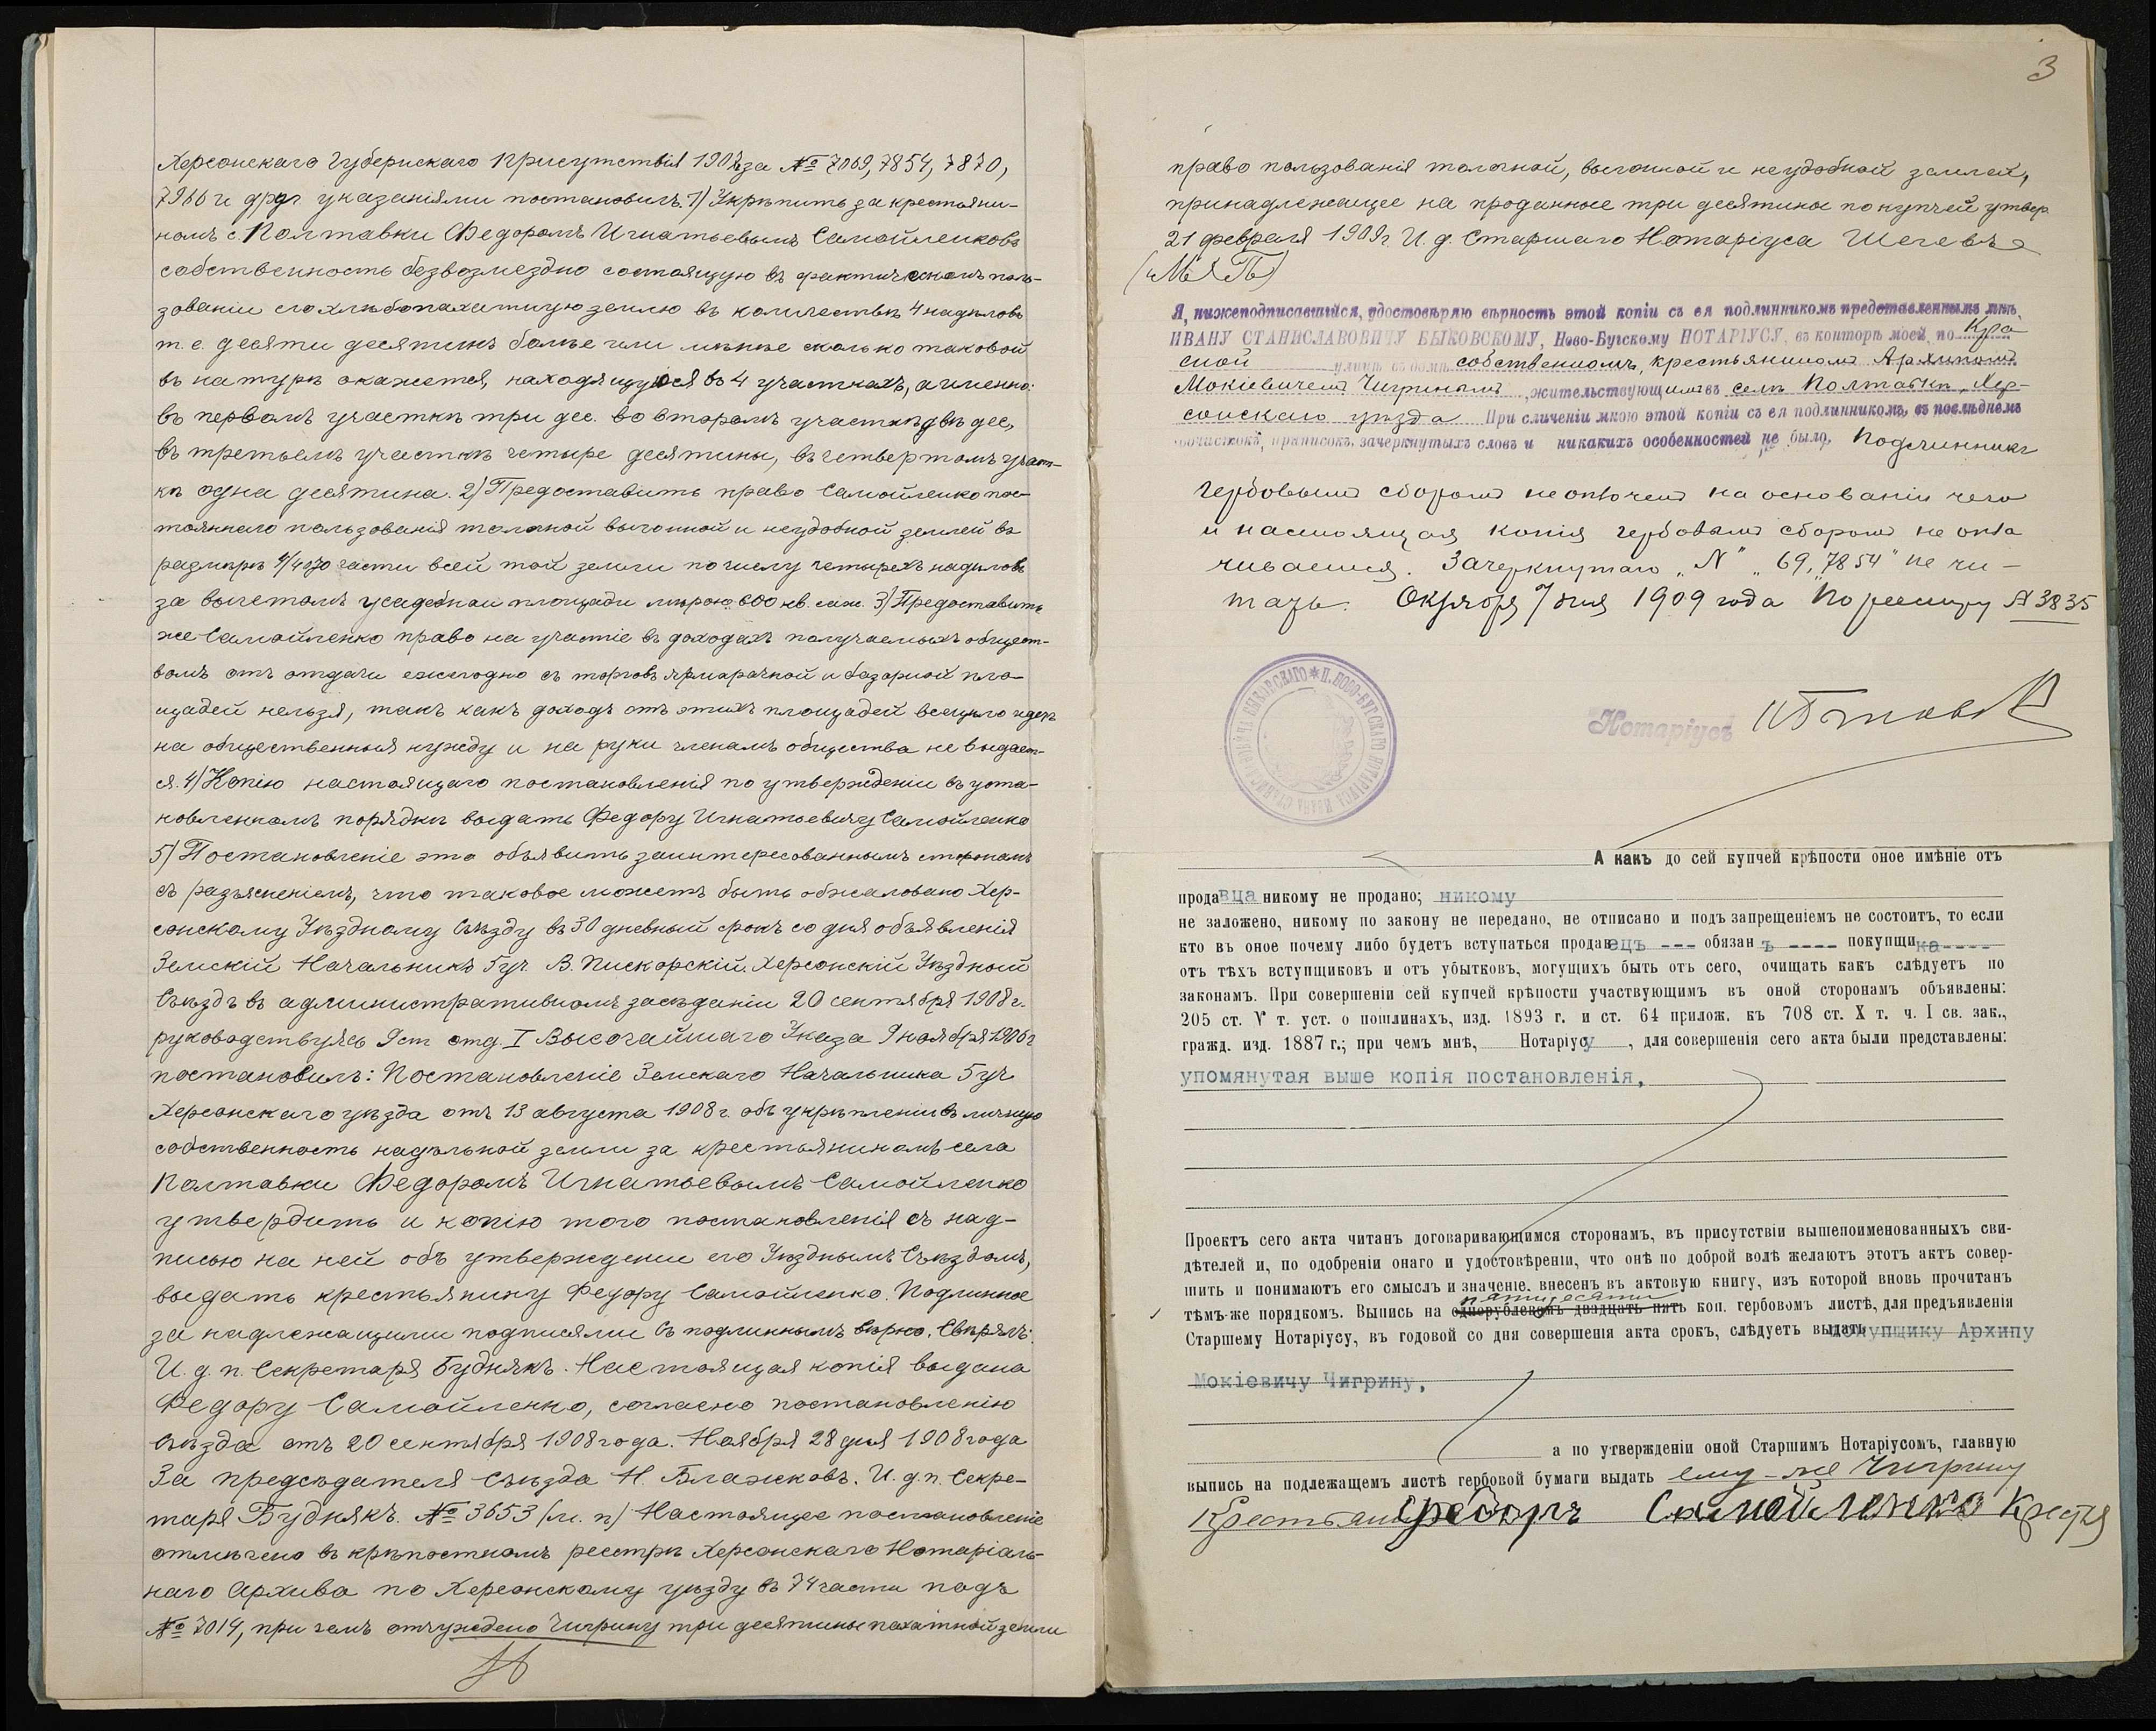 Херсонскаго Губернскаго Присутствія 190 г. за № 7069, 7854, 7870,
7966 и друг указаніями постановилъ: 1) Укрѣпить за крестьяни-
номъ с. Полтавки Федоромъ Игнатьевымъ Самойленковъ
собственность безвозмездно состоящую въ фактическомъ поль-
зованіи его хлѣбопахатную землю въ количествѣ 4 надѣловъ
т. е. десяти десятинъ болѣе или менѣе сколько таковой
въ натурѣ окажется, находящуюся въ 4 участкахъ, а именно:
въ первомъ участкѣ три дес. во второмъ участкѣ двѣ дес,
въ третьемъ участкѣ четыре десятины, въ четвертомъ участ-
кѣ одна десятина. 2) Предоставить право Самойленко пос-
тояннаго пользованія толочной выгонной и неудобной землей въ
размѣрѣ части всей той земли по числу четырехъ надѣловъ
за вычетомъ усадебной площади мѣрою 600 кв. саж. 3) Предоставить
же Самойленко право на участіе въ доходахъ получаемыхъ общест-
вомъ отъ отдачи ежегодно съ торговъ ярмарачной и базарной пло-
щадей нельзя, такъ какъ доходъ отъ этихъ площадей всецѣло идетъ
на общественныя нужду и на руки членамъ общества не выдает-
ся. 4) Копію настоящаго постановленія по утвержденіи въ уста-
новленномъ порядкѣ выдать Федору Игнатьевичу Самойленко
5) Постановленіе это объявить заинтересованнымъ сторонамъ
съ разъясненіемъ, что таковое можетъ быть обжаловано Хер-
сонскому Уѣздному Съѣзду въ 30 дневный срокъ со дня объявленія
Земскій Начальникъ 5 уч. В. Пискорскій, Херсонскій Уѣздный
Съѣздъ въ административномъ засѣданіи 20 сентября 1908 г.
руководствуясь 9 ст отд. I Высочайшаго Указа 9 ноября 1906 г
постановилъ: Постановленіе Земскаго Начальника 5 уч.
Херсонскаго уѣзда отъ 13 августа 1908 г. объ укрѣпленіи въ личную
собственность надѣльной земли за крестьяниномъ села
Полтавки Федоромъ Игнатьевымъ Самойленко
утвердить и копію того постановленія съ над-
писью на ней объ утвержденіи его Уѣзднымъ Съѣздомъ,
выдать крестьянину Федору Самойленко. Подлинное
за надлежащими подписями Съ подлиннымъ вѣрно. Свѣрялъ:
И. д. п. Секретаря Буднякъ. Настоящая копія выдана
Федору Самойленко, согласно постановленію
Съѣзда отъ 20 сентября 1908 года. Ноября 28 дня 1908 года
За предсѣдателя Съѣзда Н. Блажковъ. И. д. п. Секре-
таря Буднякъ. № 3653 (м. п) Настоящее постановленіе
отмѣчено въ крѣпостномъ реестрѣ Херсонскаго Нотаріаль-
наго Архива по Херсонскому уѣзду въ 74 части подъ
№ 7014, при чемъ отчуждено Чигрину три десятины пахатной земли
3
право пользованія толочной, выгонной и неудобной землей,
принадлежащее на проданные три десятины по купчей утвер.
21 февраля 1909 г. И. д. Старшаго Нотаріуса
(М. П.)
Я, нижеподписавшійся, удостовѣряю вѣрность этой копіи съ ея подлинникомъ представленнымъ мнѣ,
ИВАНУ СТАНИСЛАВОВИЧУ БЫКОВСКОМУ, Ново-Бугскому НОТАРІУСУ, въ конторѣ моей, по Кра
сной улицѣ въ домѣ собственномъ, крестьяниномъ Архипомъ
Мокіевичемъ Чигринымъ, жительствующимъ въ селѣ Полтавкѣ, Хер-
сонскаго уѣзда При сличеніи мною этой копіи съ ея подлинникомъ, въ послѣднемъ
подчистокъ, приписокъ, зачеркнутыхъ словъ и никакихъ особенностей не было. Подлинникъ
гербовымъ сборомъ не оплоченъ на основаніи чего
и настоящая копія гербовымъ сборомъ не опла
чивается. Зачеркнутаго „№" „69, „7854" не чи-
тать. Октября 7 дня 1909 года По реестру № 3835
Нотаріусъ
А какъ до сей купчей крѣпости оное имѣніе отъ
продавца никому не продано; никому
не заложено, никому по закону не передано, не отписано и подъ запрещеніемъ не состоитъ, то если
кто въ оное почему либо будетъ вступаться продавецъ --- обязанъ ---- покупщика----
отъ тѣхъ вступщиковъ и отъ убытковъ, могущихъ быть отъ сего, очищать какъ слѣдуетъ по
законамъ. При совершеніи сей купчей крѣпости участвующимъ въ оной сторонамъ объявлены:
205 ст. V т. уст. о пошлинахъ, изд. 1893 г. и ст. 64 прилож. къ 708 ст. X т. ч. I св. зак.,
гражд. изд. 1887 г.; при чемъ мнѣ, Нотаріусу, для совершенія сего акта были представлены:
упомянутая выше копія постановленія,
Проектъ сего акта читанъ договаривающимся сторонамъ, въ присутствіи вышепоименованныхъ сви-
дѣтелей и, по одобреніи онаго и удостовѣреніи, что онѣ по доброй волѣ желаютъ этотъ актъ совер-
шить и понимаютъ его смыслъ и значеніе, внесенъ въ актовую книгу, изъ которой вновь прочитанъ
пятидесяти
тѣмъ-же порядкомъ. Выпись на однорублевомъ двадцать пять коп. гербовомъ листѣ, для предъявленія
Старшему Нотаріусу, въ годовой со дня совершенія акта срокъ, слѣдуетъ выдать покупщику Архипу
Мокіевичу Чигрину,
а по утвержденіи оной Старшимъ Нотаріусомъ, главную
выпись на подлежащемъ листѣ гербовой бумаги выдать ему-же Чигрину
Крестьянинъ Федоръ Самойленко